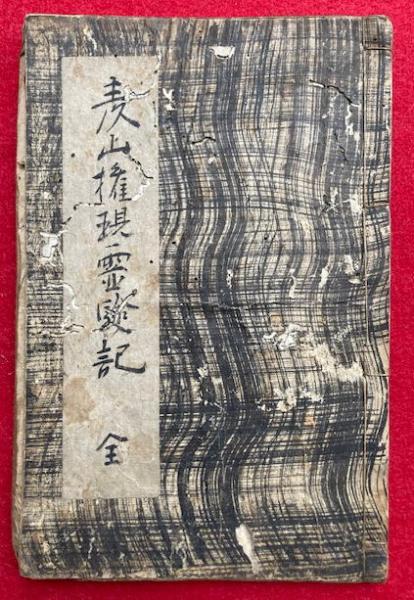 山権現霊験記 全